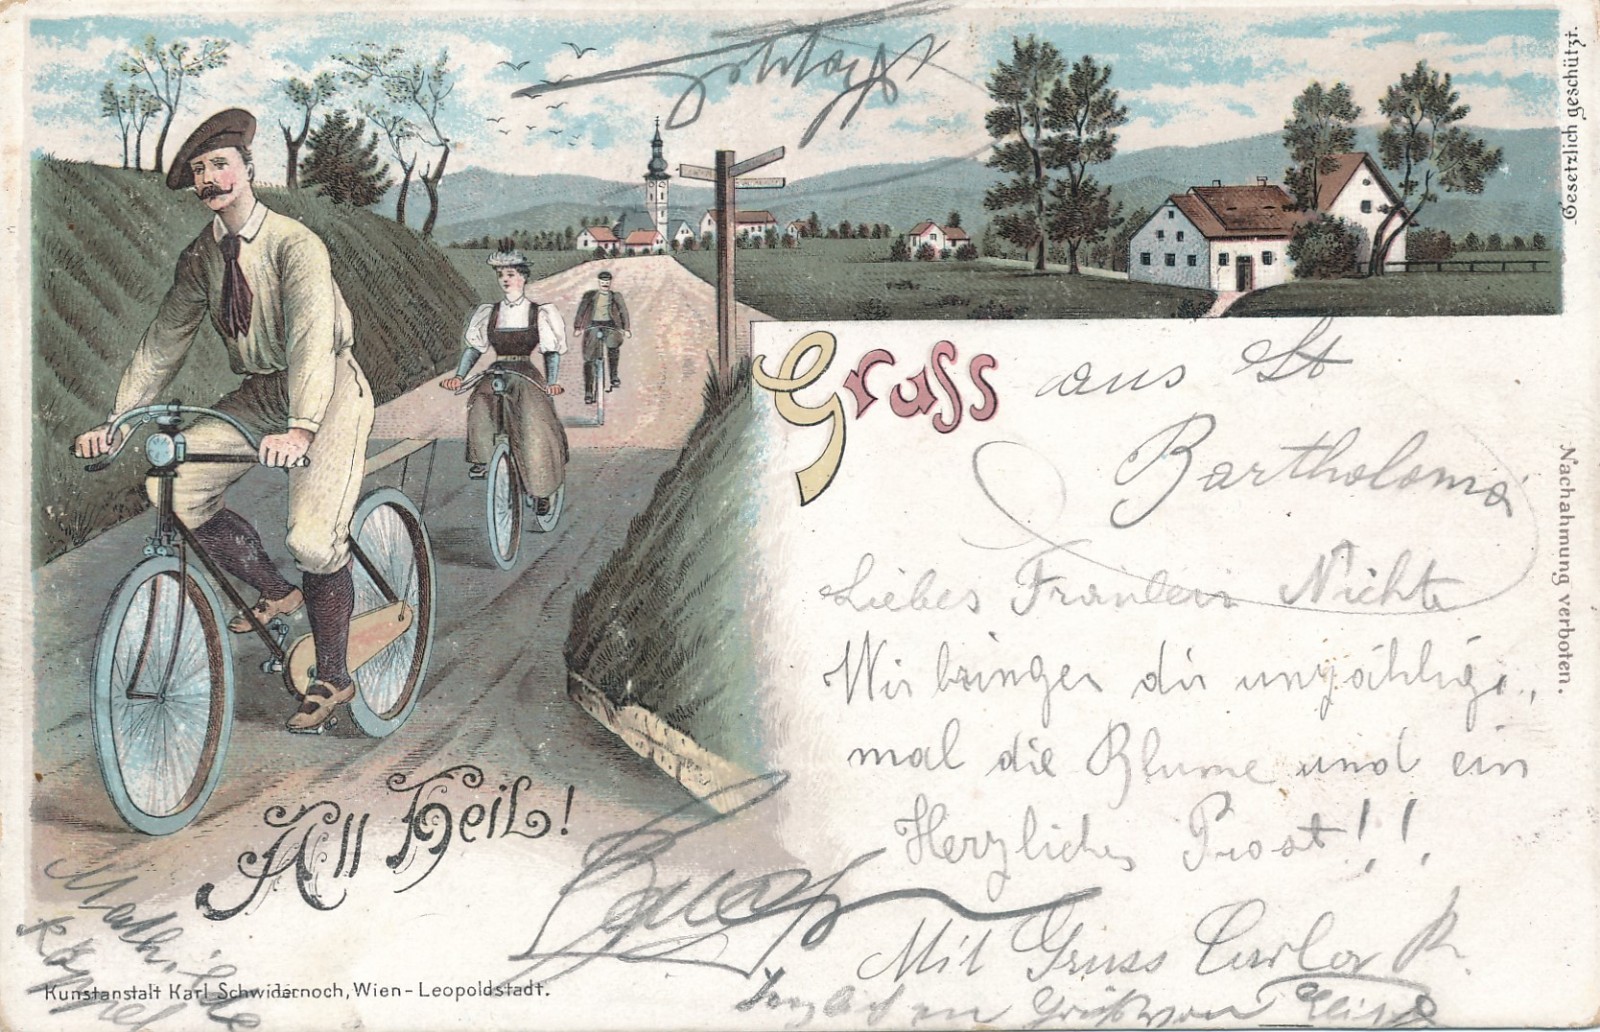 Gesetzlich geschützt.
Gruss aus St
Bartholomä
Liebes Fräulein Nichte
Wir bringen dir unzählige,
mal die Blume und ein
Herzliches Prost!!
Mit Gruss Carlo R.
Nachahmung verboten.
All Heil!
Mathilde
Kunstanstalt Karl Schwidernoch, Wien-Leopoldstadt.